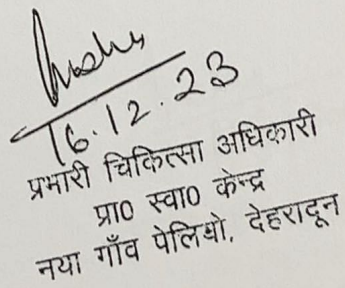 16.12.23
प्रभारी चिकित्सा अधिकारी
प्रा० स्वा० केन्द्र
नया गाँव पेलियो, देहरादून